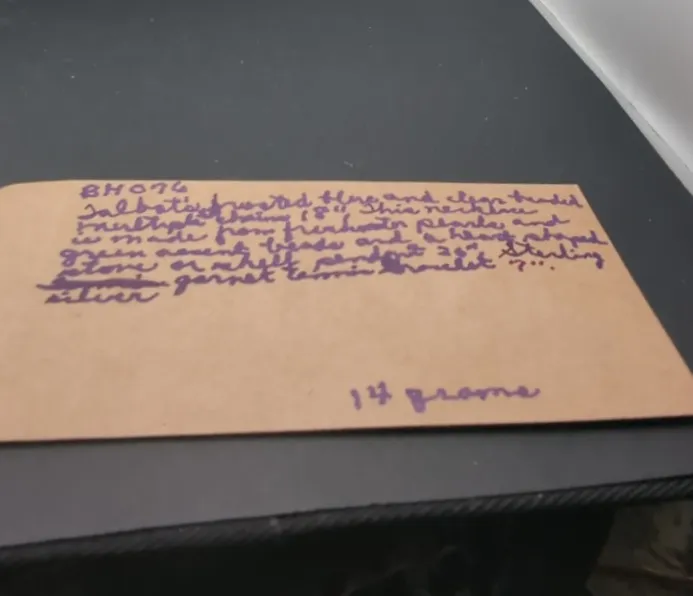 BH076
Talbot's frosted blue and clear beaded
multiple chains 18" This necklace
is made from freshwater pearls and
green accent beads and a heart shaped
stone or shell pendant 20" Sterling
garnet tennis bracelet 7".
silver
14 grams